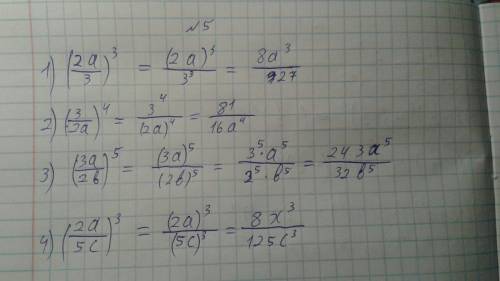 №5
1) (2a/3)^3 = (2a)^3/3^3 = 8a^3/27
2) (3/2a)^4 = 3^4/(2a)^4 = 81/16a^4
3) (3a/2b)^5 = (3a)^5/(2b)^5 = 3^5·a^5/2^5·b^5 = 243a^5/32b^5
4) (2a/5c)^3 = (2a)^3/(5c)^3 = 8x^3/125c^3